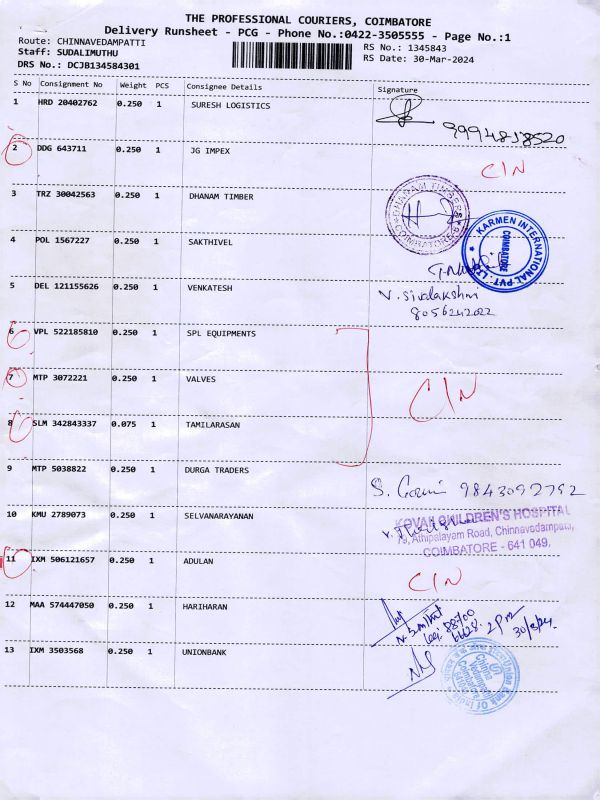 THE PROFESSIONAL COURIERS, COIMBATORE
Delivery Runsheet - PCG - Phone No.:0422-3505555 - Page No.:1
Route: CHINNAVEDAMPATTI
RS No.: 1345843
Staff: SUDALIMUTHU
RS Date: 30-Mar-2024
DRS No.: DCJB134584301
S No Consignment No Weight PCS Consignee Details Signature
1 HRD 20402762 0.250 1 SURESH LOGISTICS
2 DDG 643711 0.250 1 JG IMPEX CIN
3 TRZ 30042563 0.250 1 DHANAM TIMBER
DHANAM TIMBERS
COIMBATORE
4 POL 1567227 0.250 1 SAKTHIVEL
KARMEN INTERNATIONAL PVT. LTD.
COIMBATORE
5 DEL 121155626 0.250 1 VENKATESH
V. Sivalakshmi
8056242022
6 VPL 522185810 0.250 1 SPL EQUIPMENTS
7 MTP 3072221 0.250 1 VALVES CIN
8 SLM 342843337 0.075 1 TAMILARASAN
9 MTP 5038822 0.250 1 DURGA TRADERS
S. 9843092792
10 KMU 2789073 0.250 1 SELVANARAYANAN
KOVAI CHILDREN'S HOSPITAL
79, Athipalayam Road, Chinnavedampatti,
COIMBATORE - 641 049.
11 IXM 506121657 0.250 1 ADULAN CIN
12 MAA 574447050 0.250 1 HARIHARAN
2 PM
30/3/24
13 IXM 3503568 0.250 1 UNIONBANK
Union Bank Of India